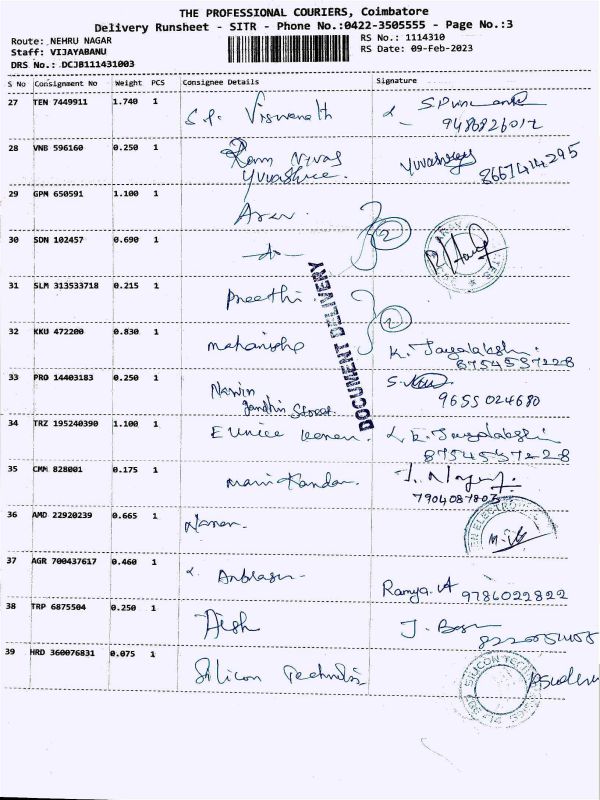 THE PROFESSIONAL COURIERS, Coimbatore
Delivery Runsheet - SITR - Phone No.:0422-3505555 - Page No.:3
Route: NEHRU NAGAR
RS No.: 1114310
Staff: VIJAYABANU
RS Date: 09-Feb-2023
DRS No.: DCJB111431003
S No Consignment No Weight PCS Consignee Details Signature
27 TEN 7449911 1.740 1 S.P. Viswanath
9486826012
28 VNB 596160 0.250 1 Ram Nivas
Yuvashree. Yuvashree 8667414295
29 GPM 650591 1.100 1
30 SDN 102457 0.690 1 2
31 SLM 313533718 0.215 1 Preethi
DOCUMENT DELIVERY
32 KKU 472200 0.830 1 2
K. Jayalakshi
8754537228
33 PRO 14403183 0.250 1 Navin
Gandhi Street. 9655024680
34 TRZ 195240390 1.100 1 Eunice
8754537228
35 CMM 828001 0.175 1 Manikandan
7904087803
36 AMD 22920239 0.665 1
37 AGR 700437617 0.460 1
Ramya. A 9786022822
38 TRP 6875504 0.250 1 Aish
39 HRD 360076831 0.075 1 Silicon
SILICON TECH